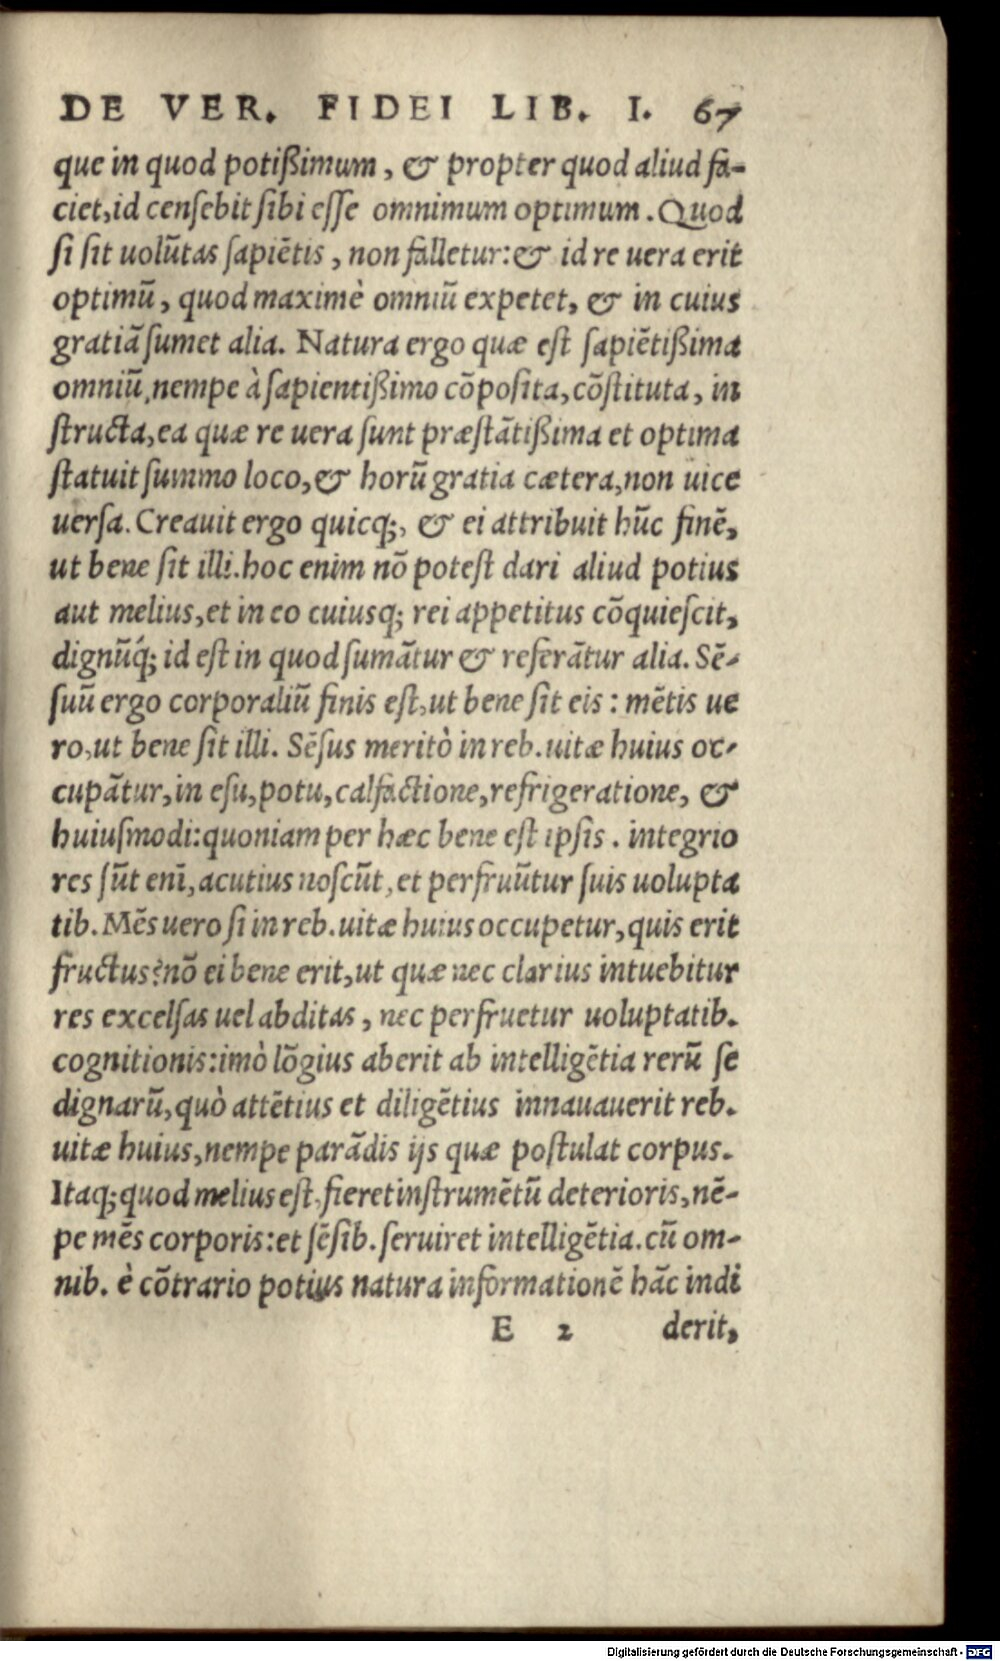 DE VER. FIDEI LIB. I. 67
que in quod potißimum, & propter quod aliud fa-
ciet, id censebit sibi esse omnimum optimum. Quod
si sit uolūtas sapiētis, non falletur: & id re uera erit
optimū, quod maximè omniū expetet, & in cuius
gratiā sumet alia. Natura ergo quæ est sapiētißima
omniū, nempe à sapientißimo cōposita, cōstituta, in
structa, ea quæ re uera sunt præstātißima et optima
statuit summo loco, & horū gratia cætera, non uice
uersa. Creauit ergo quicq;, & ei attribuit hūc finē,
ut bene sit illi. hoc enim nō potest dari aliud potius
aut melius, et in eo cuiusq; rei appetitus cōquiescit,
dignūq́; id est in quod sumātur & referātur alia. Sē-
suū ergo corporaliū finis est, ut bene sit eis: mētis ue
ro, ut bene sit illi. Sēsus meritò in reb. uitæ huius oc-
cupātur, in esu, potu, calfactione, refrigeratione, &
huiusmodi: quoniam per hæc bene est ipsis. integrio
res sūt enī, acutius noscūt, et perfruūtur suis uolupta
tib. Mēs uero si in reb. uitæ huius occupetur, quis erit
fructus? nō ei bene erit, ut quæ nec clarius intuebitur
res excelsas uel abditas, nec perfruetur uoluptatib.
cognitionis: imò lōgius aberit ab intelligētia rerū se
dignarū, quò attētius et diligētius innauauerit reb.
uitæ huius, nempe parādis ijs quæ postulat corpus.
Itaq; quod melius est, fieret instrumētū deterioris, nē-
pe mēs corporis: et sēsib. seruiret intelligētia. cū om-
nib. è cōtrario potius natura informationē hāc indi
E 2 derit,
Digitalisierung gefördert durch die Deutsche Forschungsgemeinschaft - DFG